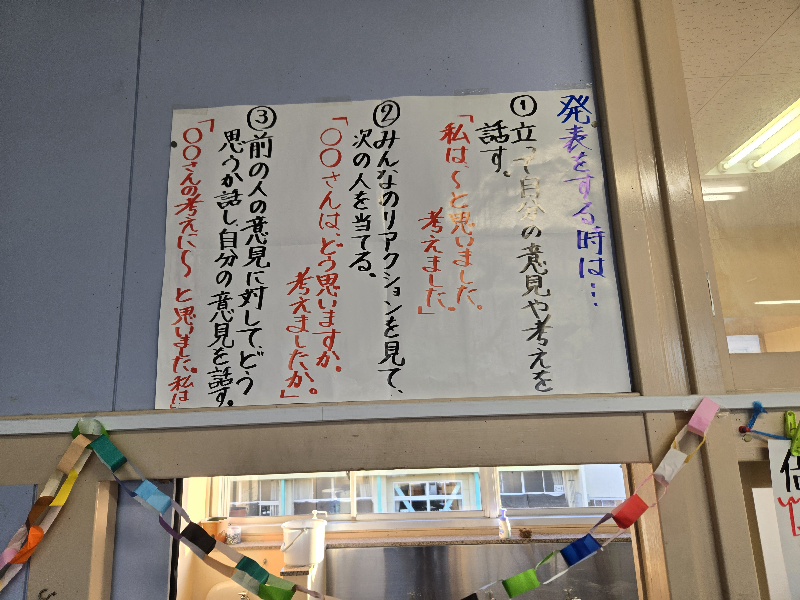 発表をする時は…
①立って自分の意見や考えを
話す。
「私は、～と思いました。
考えました。」
②みんなのリアクションを見て、
次の人を当てる。
「〇〇さんは、どう思いますか。
考えましたか。」
③前の人の意見に対して、どう
思うか話し、自分の意見を話す。
「〇〇さんの考えに～と思いました。私は